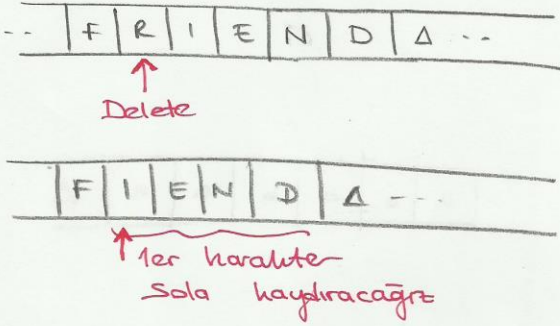 -- F R I E N D Δ --
Delete
F I E N D Δ ---
1er karakter
Sola kaydıracağız